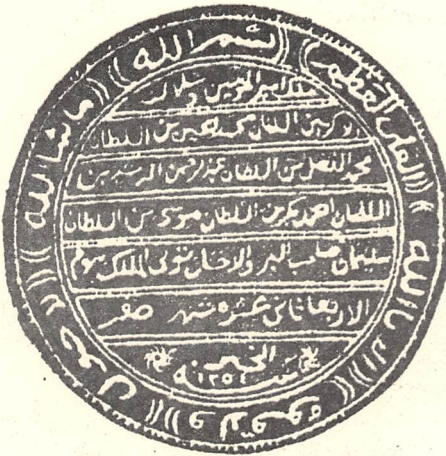 بسم الله
ما شا الله
لا حول
ولا قوة
الا بالله
العلي العظيم
وسلالة
الاكرمين السلطان محمد الحسين بن السلطان
محمد الفضل بن السلطان عبد الرحمن الرشيد بن
السلطان احمد بكر بن السلطان موسى بن السلطان
سليمان صاحب البر والاحسان تولى الملك يوم
الاربعا ثاني عشره شهر صفر
الخير
سنة ١٢٥٤